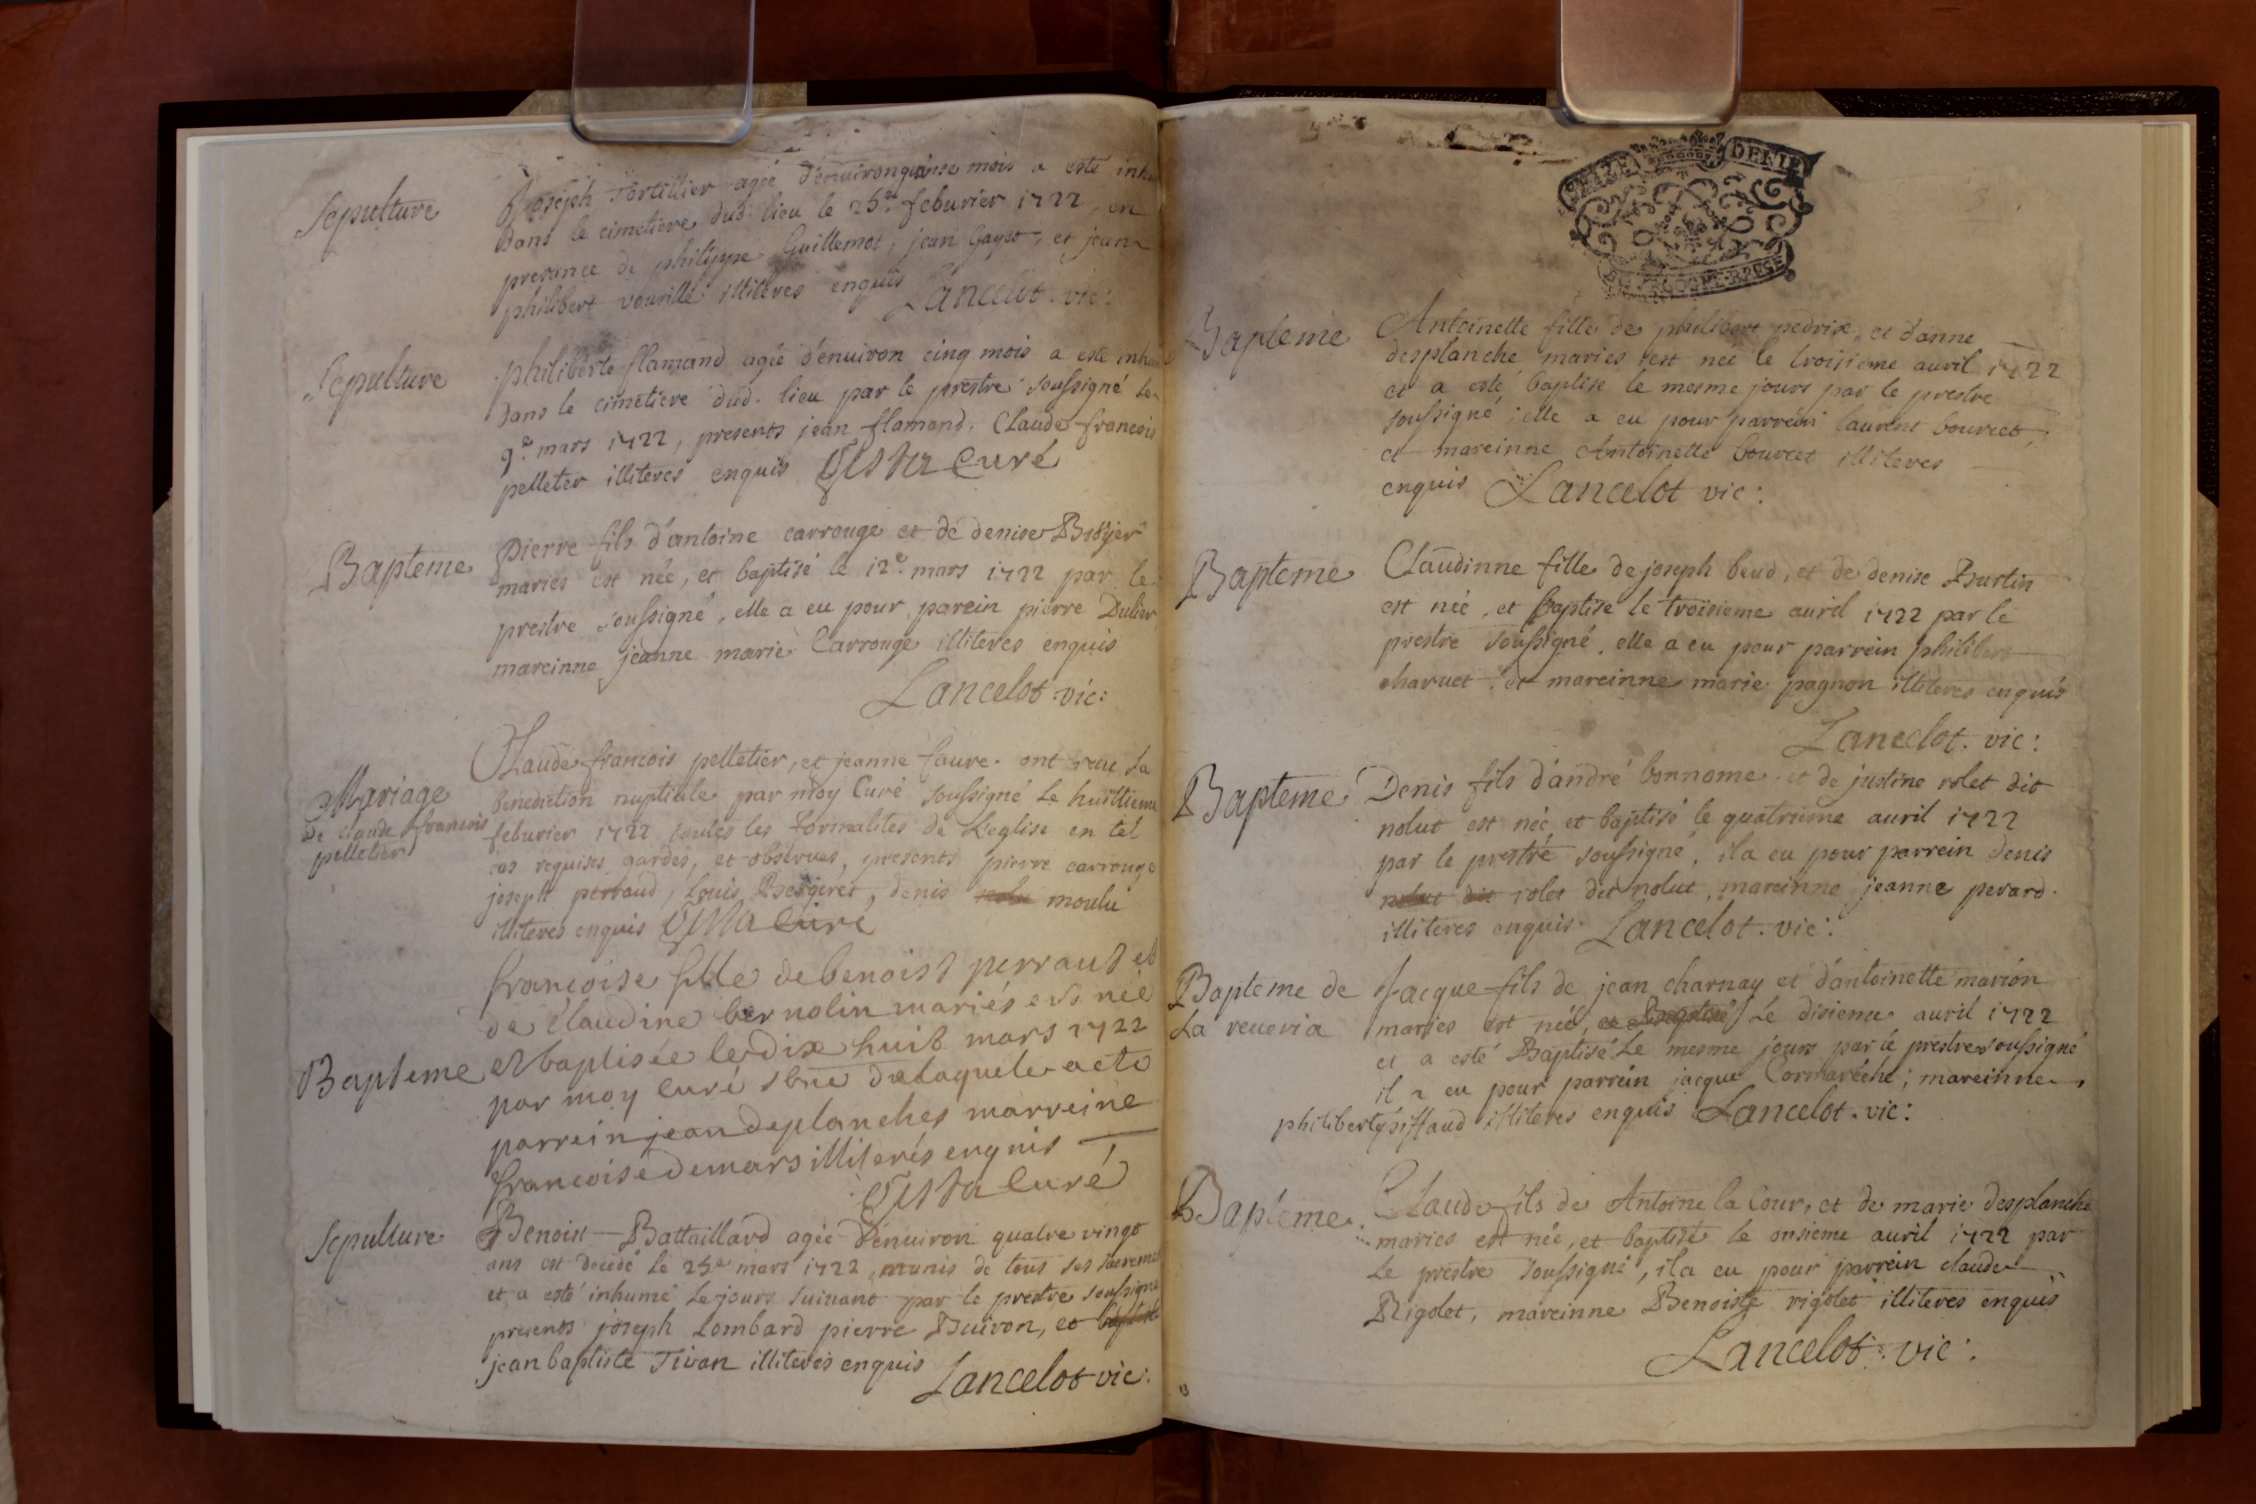 Sepulture
Joseph Tortillier agée d'enuiron quinse mois a esté inhu
Dans le cimetiere dud. lieu le 26.e feburier 1722, en
presence de philippe Guillemot, jean Gayot, et jean
philibert vourille illiteres enquis Lancelot. vic:
Sepulture
philiberte flamand agée d'enuiron cinq mois a esté inhu
Dans le cimetiere dud. lieu par le prestre soussigné Le
9.e mars 1722, presents jean flamand, Claude francois
pelleter illiteres enquis Curé
Bapteme
Pierre fils d'antoine carrouge et de denise
maries est née, et baptisé le 12.e mars 1722 par le
prestre soussigné, elle a eu pour parein pierre Dulier
mareinne jeanne marie Carrouge illiteres enquis
Lancelot. vic:
Mariage
De claude francois
pelletier
Claude francois pelletier, et jeanne faure ont receu La
benediction nuptiale par moy Curé soussigné Le huittieme
feburier 1722 toutes les formalites de Leglise en tel
cas requises gardés, et obserues, presents pierre carrouge
joseph perraud, Louis Bergeret, denis moulu
illiteres enquis Curé
Bapteme
francoise fille de benoist perraut et
de Claudine bernolin mariés est née
et baptisée le dix huit mars 1722
par moy curé de laquele acte
parrein jean deplanches marreine
francoise demars illiterés enquis
Curé
Sepulture
Benoist Battaillard agée d'enuiron quatre vingt
ans est decedé le 25.e mars 1722, munis de tous ses sacreme
et a esté inhumé Le jours suiuant par le prestre soussigné
presents joseph Lombard pierre Buiron, et baptiste
jean baptiste Tivan illiteres enquis Lancelot vic:
SEIZE DENIE
Bapteme
Antoinette fille de philibert pedrix, et d'anne
desplanche maries est née le troisieme auril 1722
et a esté baptise le mesme jours par le prestre
soussigné; elle a eu pour parrein laurent bourcet,
et mareinne Antoinette bourcet illiteres
enquis Lancelot vic:
Bapteme
Claudinne fille de joseph beud, et de denise Burtin
est née, et baptisé le troisieme auril 1722 par le
prestre soussigné, elle a eu pour parrein philibert
charuet, et mareinne marie pagnon illiteres enquis
Lancelot. vic:
Bapteme
Denis fils d'andré bonnome, et de justine rolet dit
nolut est née et baptisé le quatrieme auril 1722
par le prestre soussigné, il a eu pour parrein denis
nolut dit rolet dit nolut, mareinne jeanne perard.
illiteres enquis. Lancelot. vic:
Bapteme de
La reueria
Jacque fils de jean charnay et d'antoinette marion
maries est née, et baptisé Le disieme auril 1722
et a esté Baptisé Le mesme jours par le prestre soussigné
il a eu pour parrein jacque Cormareche; mareinne
philiberte piffaud illiteres enquis Lancelot. vic:
Bapteme
Claude fils de Antoine la Cour, et de marie desplanche
maries est née, et baptisé le onsieme auril 1722 par
Le prestre soussigné, il a eu pour parrein claude
Rigolet, mareinne Benoiste rigolet illiteres enquis
Lancelot. vic: